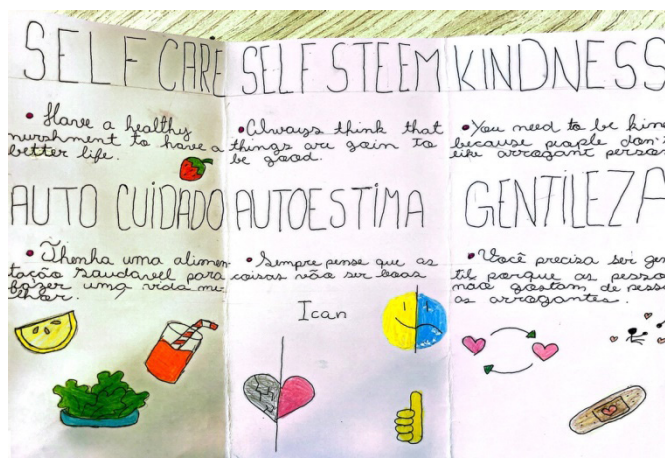 SELF CARE
• Have a healthy
nurshment to have a
better life.
AUTO CUIDADO
• Thenha uma alimen
tação saudavel para
fazer uma vida me
lhor.
SELF STEEM
• Always think that
things are gain to
be good.
AUTOESTIMA
• Sempre pense que as
coisas vão ser boas
I can
KINDNESS
• You need to be kin
because people don'
like arrogant person
GENTILEZA
• Você precisa ser gen
til porque as pessoa
não gostam de pesso
as arrogantes.